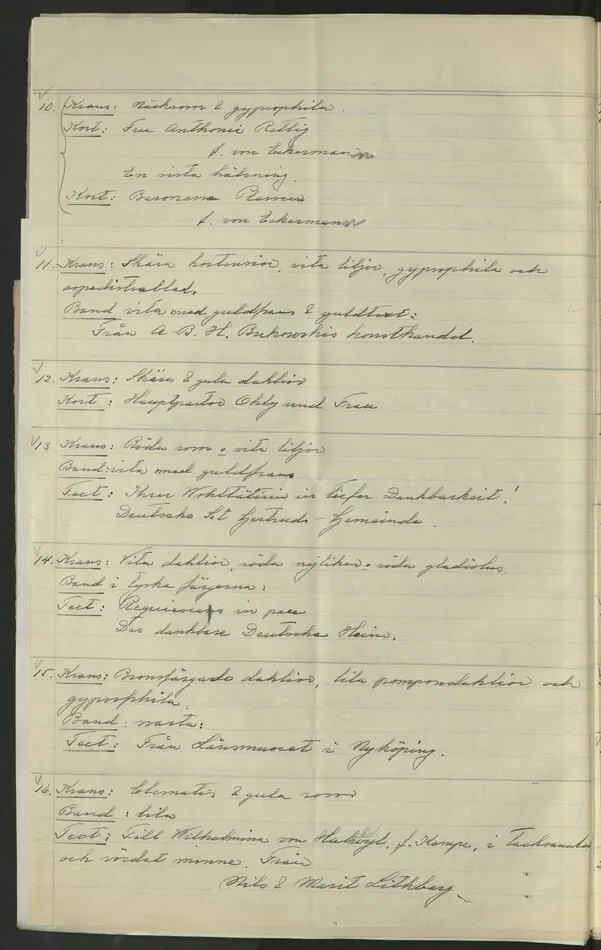 10. Krans: Näckrosor & gypsophila.
Kort: Fru Anthonie Rettig
f. von Eckermann
En sista hälsning.
Kort: Baronessa Ramel
f. von Eckermann
11. Krans: Skära hortensior, vita liljor, gypsophila och
aspedistrablad.
Band vita med guldfrans & guldtext:
Från A-B. H. Bukowskis konsthandel.
12. Krans: Skära & gula dahlior
Kort: Hauptpastor Ohly und Frau
13 Krans: Röda rosor o vita liljor
Band: vita med guldfrans
Text: Ihrer Wohltäterin in tiefer Dankbarkeit!
Deutsche St Gertruds-Gemeinde.
14. Krans: Vita dahlior, röda nejlikor o röda gladiolus.
Band i tyska färgerna:
Text: Requiescas in pace
Das dankbare Deutsche Heim.
15. Krans: Bronsfärgade dahlior, lila pompondahlior och
gypsophila.
Band: svarta:
Text: Från Länsmuseet i Nyköping.
16. Krans: Clematis & gula rosor
Band: lila
Text: Till Wilhelmina von Hallwyl, f. Kempe, i tacksamhet
och vördat minne. Från
Nils & Marit Lithberg